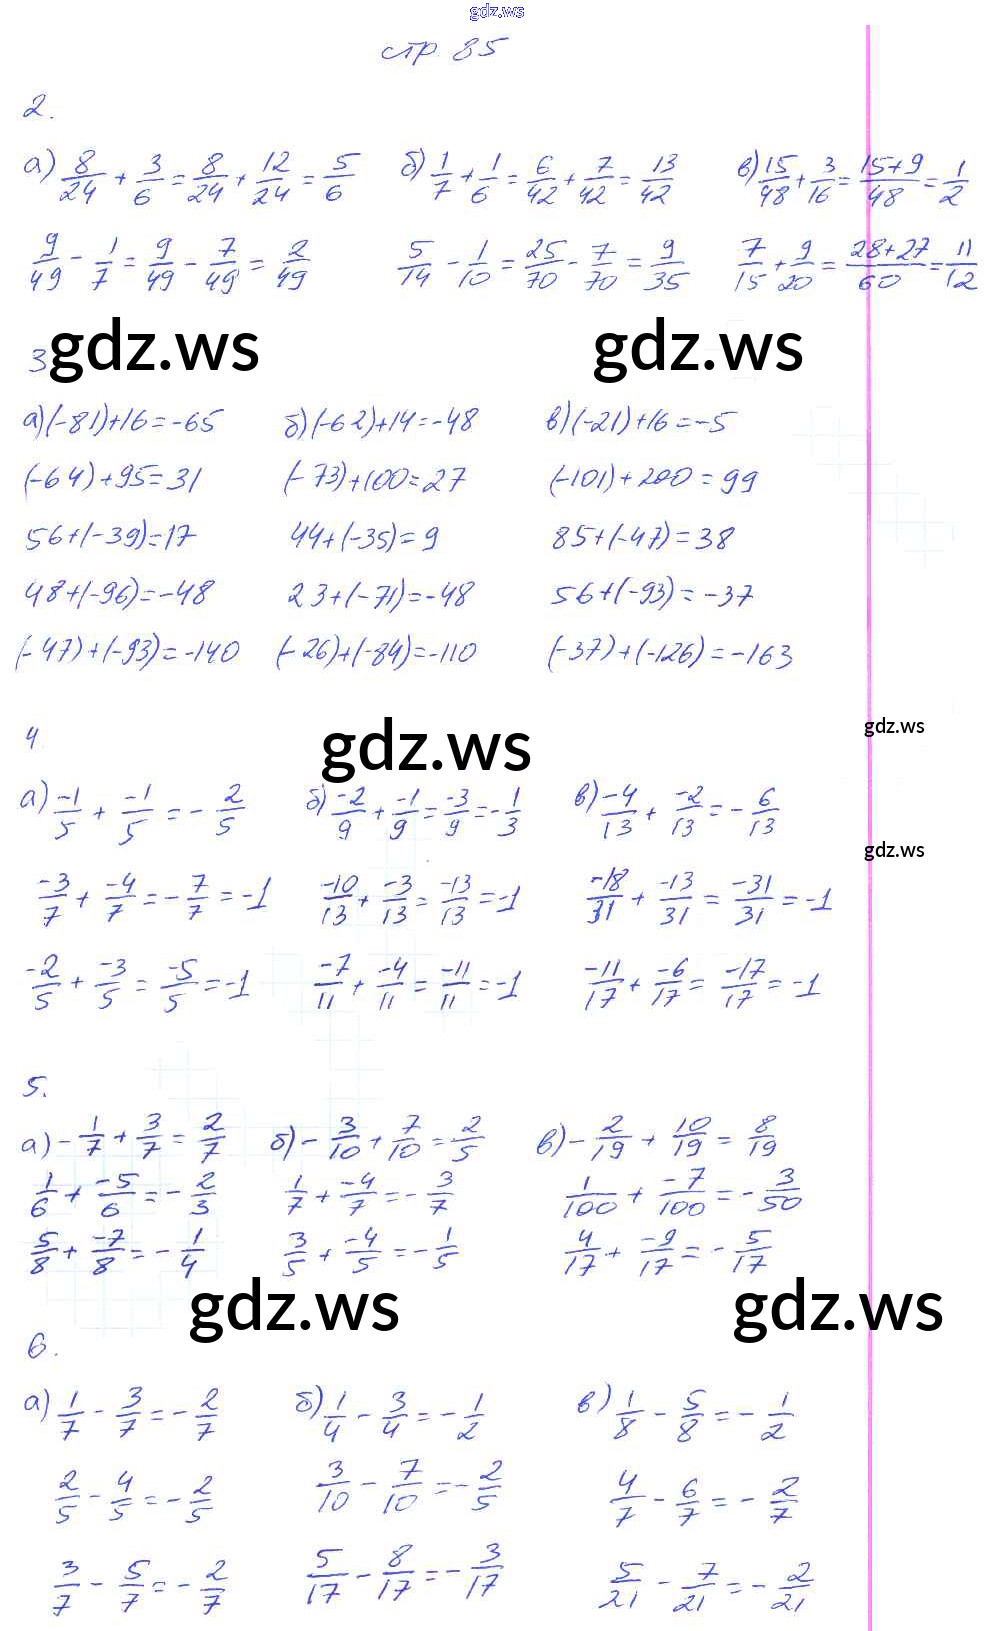 gdz.ws
стр 85
2.
а) 8/24 + 3/6 = 8/24 + 12/24 = 5/6 б) 1/7 + 1/6 = 6/42 + 7/42 = 13/42 в) 15/48 + 3/16 = (15+9)/48 = 1/2
9/49 - 1/7 = 9/49 - 7/49 = 2/49 5/14 - 1/10 = 25/70 - 7/70 = 9/35 7/15 + 9/20 = (28+27)/60 = 11/12
3 gdz.ws gdz.ws
а) (-81)+16=-65 б) (-62)+14=-48 в) (-21)+16=-5
(-64)+95=31 (-73)+100=27 (-101)+200=99
56+(-39)=17 44+(-35)=9 85+(-47)=38
48+(-96)=-48 23+(-71)=-48 56+(-93)=-37
(-47)+(-93)=-140 (-26)+(-84)=-110 (-37)+(-126)=-163
4. gdz.ws gdz.ws
а) -1/5 + -1/5 = - 2/5 б) -2/9 + -1/9 = -3/9 = - 1/3 в) -4/13 + -2/13 = - 6/13
gdz.ws
-3/7 + -4/7 = - 7/7 = -1 -10/13 + -3/13 = -13/13 = -1 -18/31 + -13/31 = -31/31 = -1
-2/5 + -3/5 = -5/5 = -1 -7/11 + -4/11 = -11/11 = -1 -11/17 + -6/17 = -17/17 = -1
5.
а) - 1/7 + 3/7 = 2/7 б) - 3/10 + 7/10 = 2/5 в) - 2/19 + 10/19 = 8/19
1/6 + -5/6 = - 2/3 1/7 + -4/7 = - 3/7 1/100 + -7/100 = - 3/50
5/8 + -7/8 = - 1/4 3/5 + -4/5 = - 1/5 4/17 + -9/17 = - 5/17
gdz.ws gdz.ws
6.
а) 1/7 - 3/7 = - 2/7 б) 1/4 - 3/4 = - 1/2 в) 1/8 - 5/8 = - 1/2
2/5 - 4/5 = - 2/5 3/10 - 7/10 = - 2/5 4/7 - 6/7 = - 2/7
3/7 - 5/7 = - 2/7 5/17 - 8/17 = - 3/17 5/21 - 7/21 = - 2/21